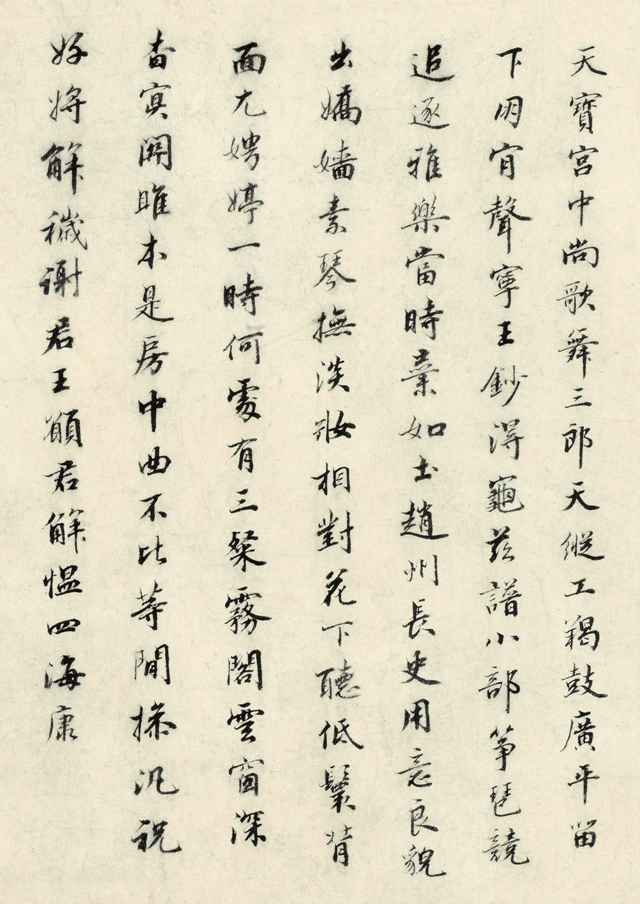 天寶宮中尚歌舞三郎天縱工羯鼓廣平留
下明宵聲寧王鈔得龜茲譜小部箏琶競
追逐雅樂當時棄如土趙州長史用意良貌
出嬌嬙素琴撫淡妝相對花下聽低鬟背
面尤娉婷一時何處有三粲霧閣雲窗深
杳冥關雎本是房中曲不比等閒操汎祝
好將解穢謝君王願君解慍四海康